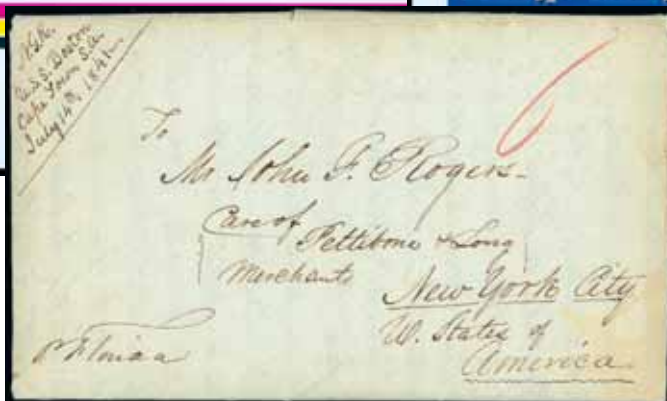 U.S.S. Boston
Cape Town S.A.
July 14th, 1841
6
To
Mr John F. Rogers
Care of Pettibone & Long
Merchants
New York City
U. States of
America